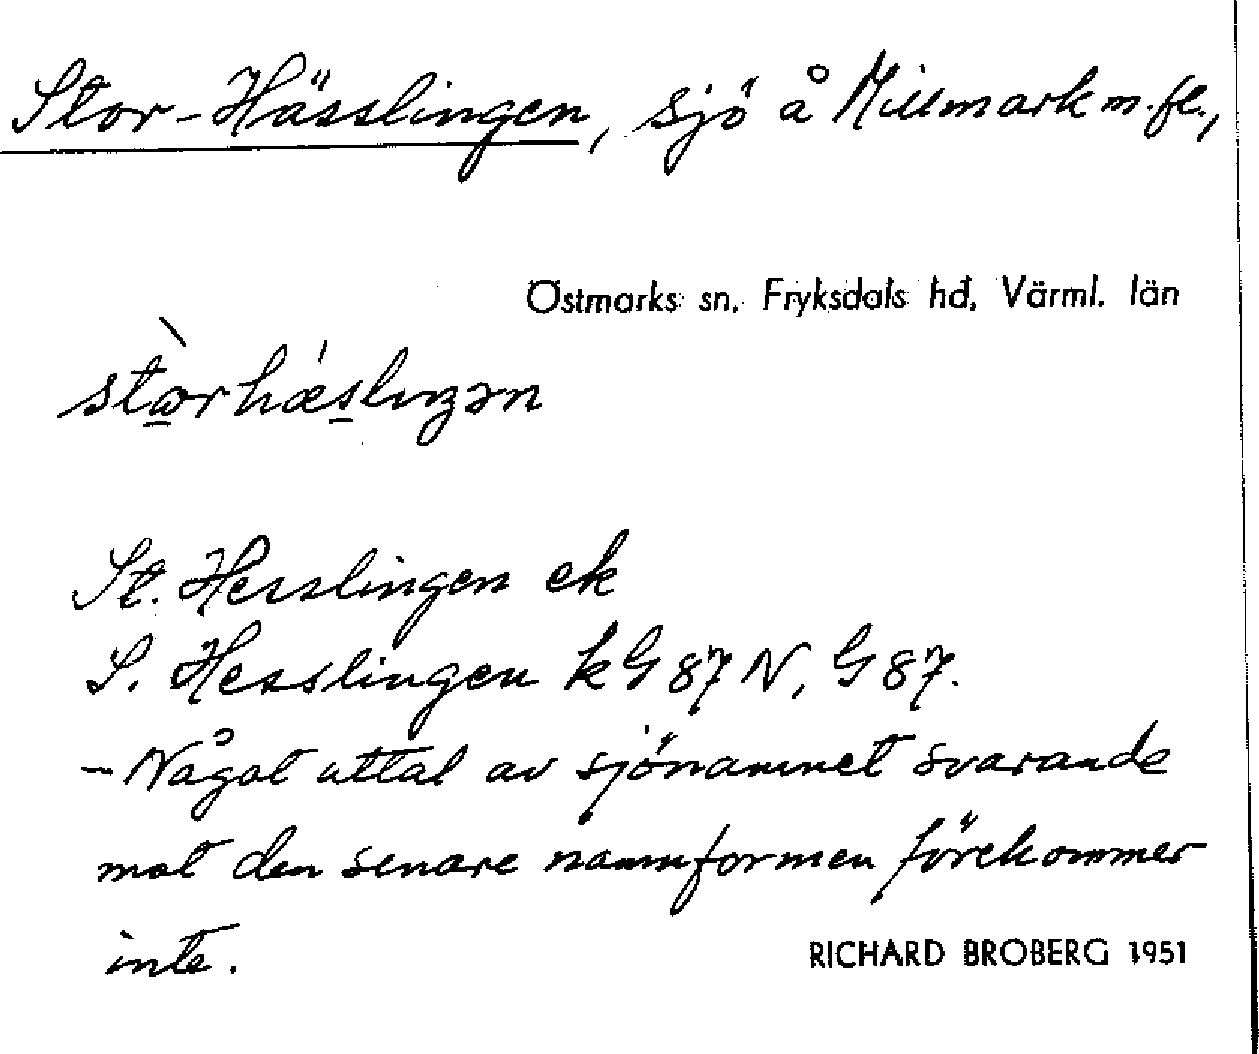 Stor-Hässlingen, sjö å Millmark m.fl.,
Östmarks sn. Fryksdals hd, Värml. län
St. Hesslingen ek
S. Hesslingen kG87N, G87.
– Något uttal av sjönamnet svarande
mot den senare namnformen förekommer
inte.
RICHARD BROBERG 1951